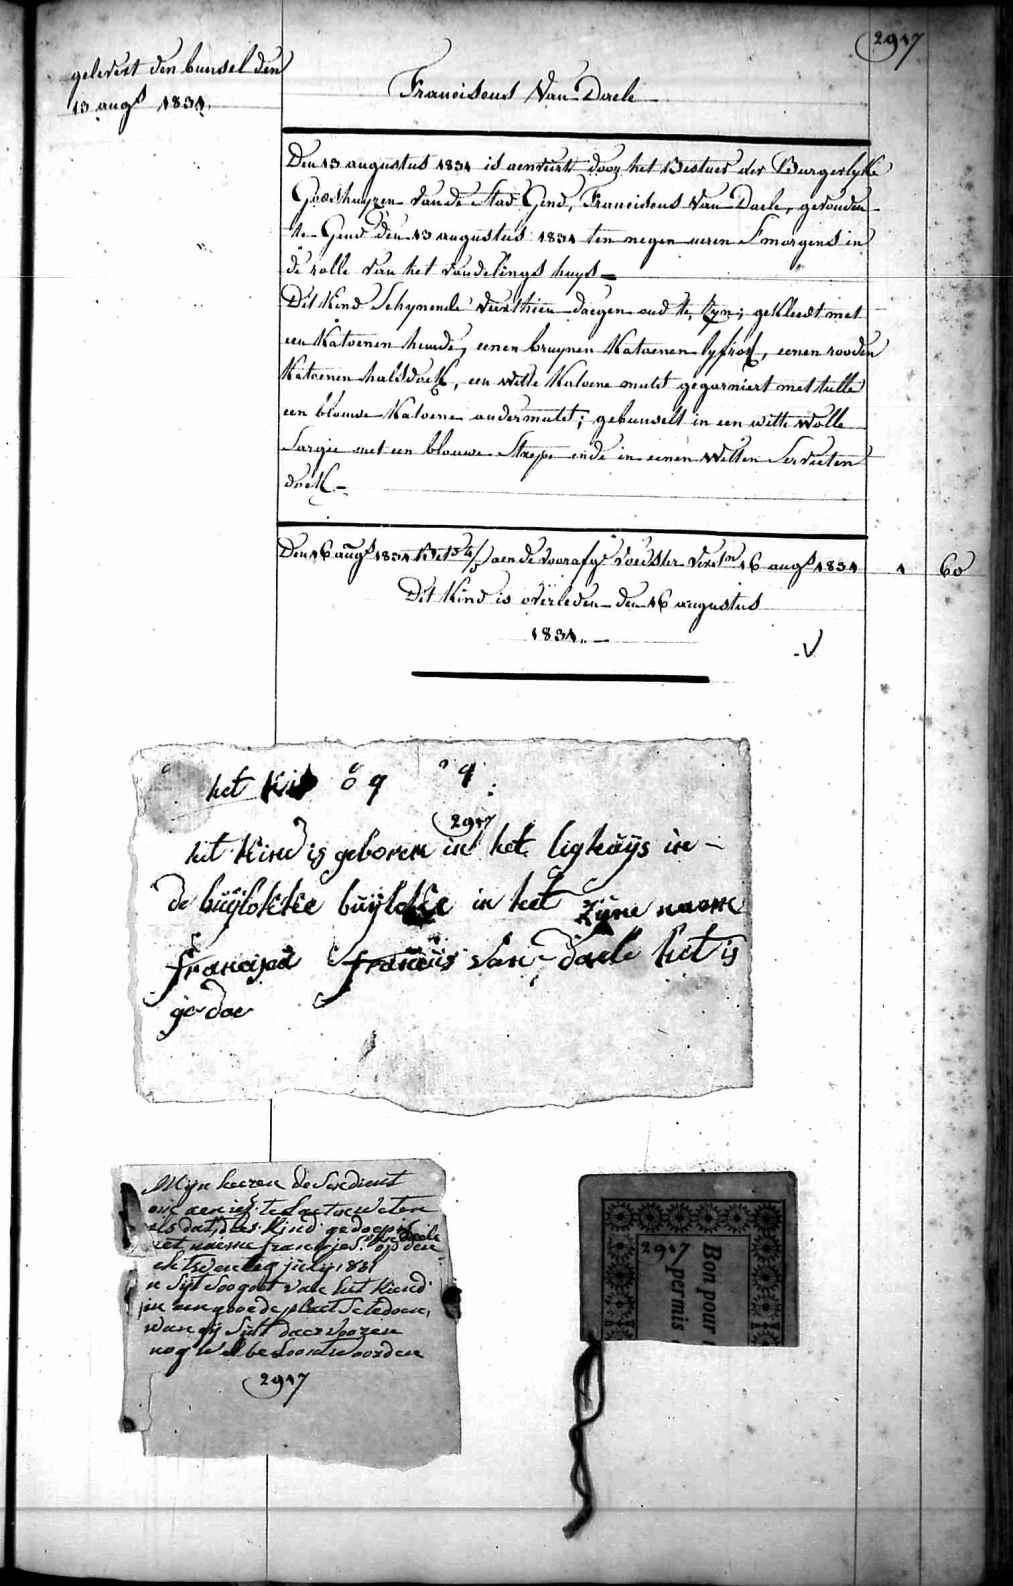 2917
gelevert den bunsel den
13 augs 1831.
Franciscus Van Daele
Den 13 augustus 1831 is aenveirt door het Bestuer der Burgerlyke
Godshuyzen van de Stad Gend, Franciscus Van Daele, gevonden
te Gend den 13 augustus 1831 ten negen ueren Smorgens in
de rolle van het vondelings huys
Dit Kind Schynende veerthien daegen oud te zyn; gekleedt met
een Katoenen hemde, eenen bruynen Katoenen lyfrok, eenen rooden
Katoenen halsdoek, een witte Katoene muts gegarniert met tulle
een blauwe Katoene ondermuts; gebunselt in een witte wolle
Sargie met een blauwe Strepe ende in eenen Witten Servietten
doek.
Den 16 augs 1831 aen de voorafge voedster 16 augs 1831 1 60
Dit Kind is overleden den 16 augustus
1831.
V
het Kid 6 9 9
2917
hit Kind is geboren in het lighuÿs in
de buÿlokke buÿlokke in het zÿne naeme
francisus francüis van daele het is
gedoe
Mijn heeren de Seedient
te laeten weten
als dat dees Kind gedoept is
met naeme fransies van daele op den
twentig july 1831
Sijt Soo goet van het Kiend
in een goede plaet Se te doen,
wan gij Sult daer voozen
nog wel beloont woorden
2917
2917
Bon pour
permis